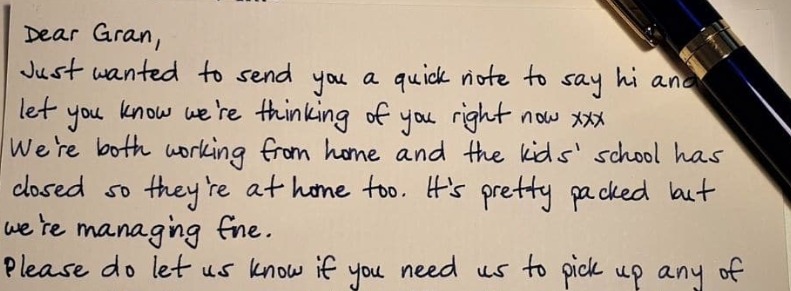 Dear Gran,
Just wanted to send you a quick note to say hi and
let you know we're thinking of you right now xxx
We're both working from home and the kids' school has
closed so they're at home too. It's pretty packed but
we're managing fine.
Please do let us know if you need us to pick up any of